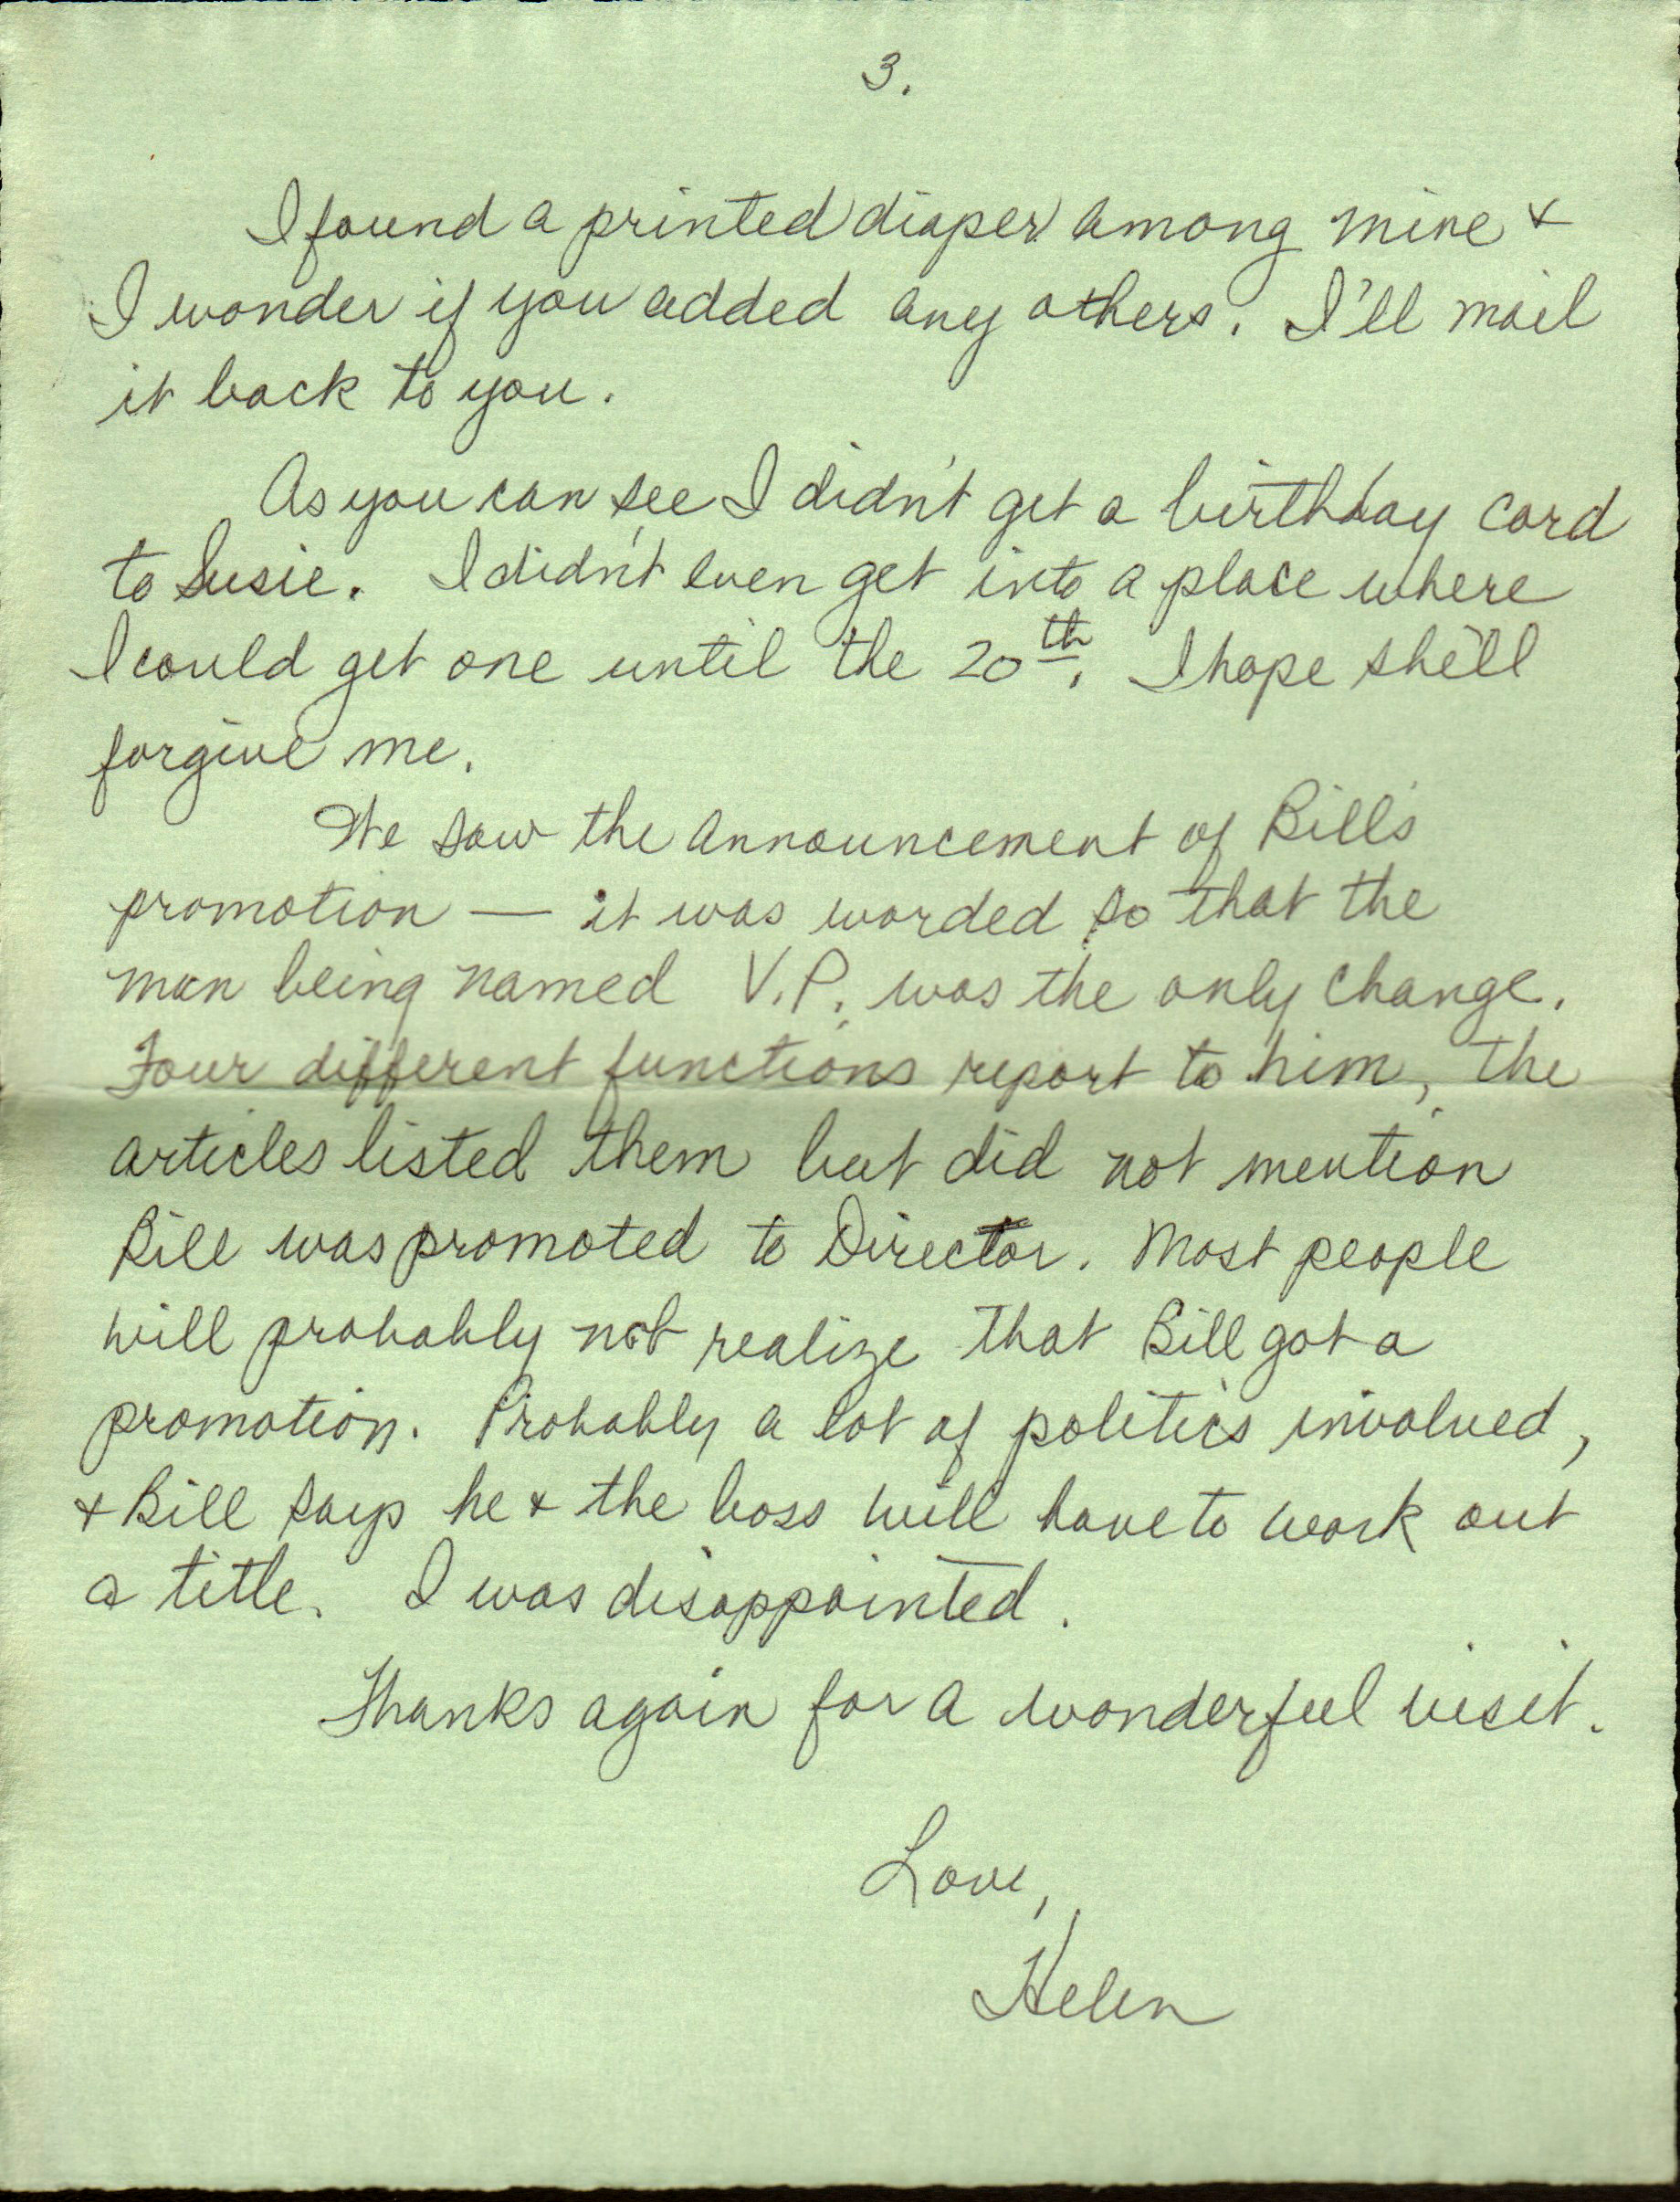 3.
I found a printed diaper among mine &
I wonder if you added any others. I'll mail
it back to you.
As you can see I didn't get a birthday card
to Susie. I didn't even get into a place where
I could get one until the 20th. I hope she'll
forgive me.
We saw the announcement of Bill's
promotion — it was worded so that the
man being named V.P. was the only change.
Four different functions report to him, the
articles listed them but did not mention
Bill was promoted to Director. Most people
will probably not realize that Bill got a
promotion. Probably a lot of politics involved,
& Bill says he & the boss will have to work out
a title. I was disappointed.
Thanks again for a wonderful visit.
Love,
Helen